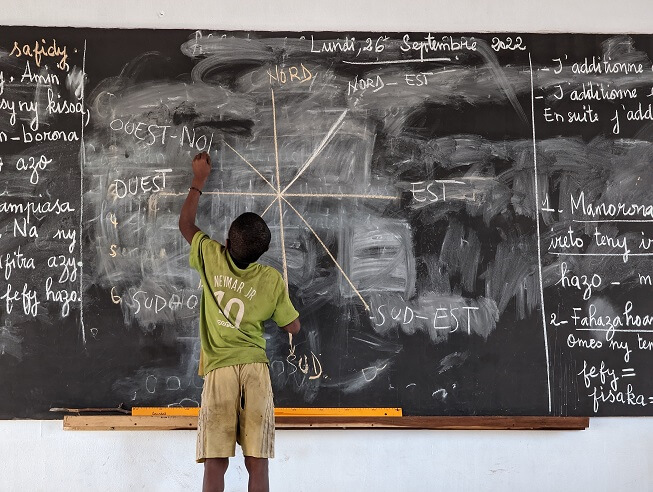 safidy.
Amin
sy ny kisoa
borona
azo
ampiasa
Na ny
afitra azy.
fefy hazo.
Lundi, 26 Septembre 2022
NORD
NORD-EST
OUEST-NO
OUEST
EST
SUDHO
SUD-EST
SUD
NEYMAR JR
10
- J'additionne
- J'additionne
Ensuite j'add
1- Mamorona
ireto teny
hazo -
2- Fahazahoa
Omeo ny
fefy =
fisaka =